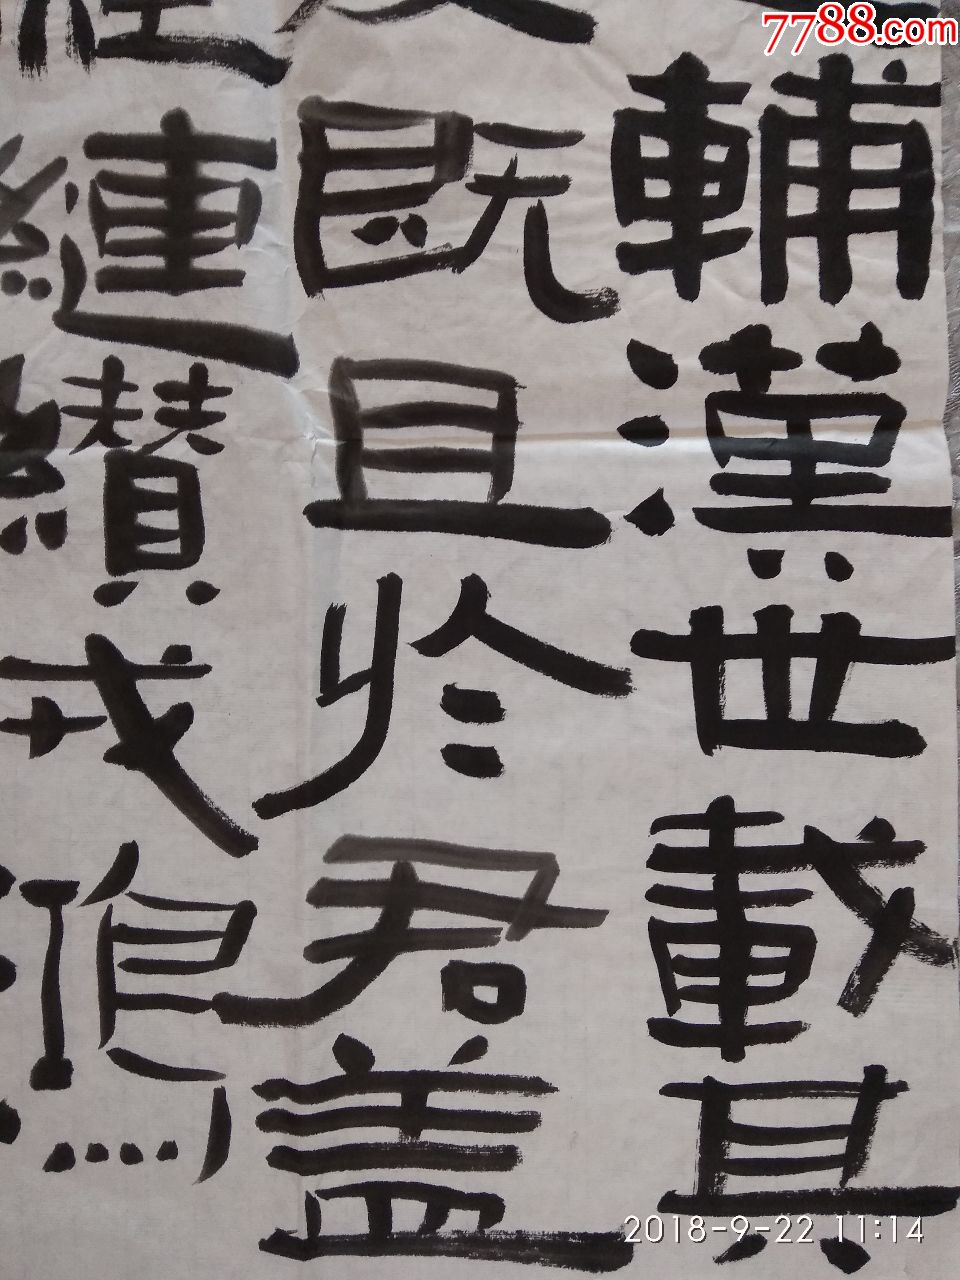 7788.com
輔漢世載其
既且於君蓋
縺纘戎鴻
2018-9-22 11:14